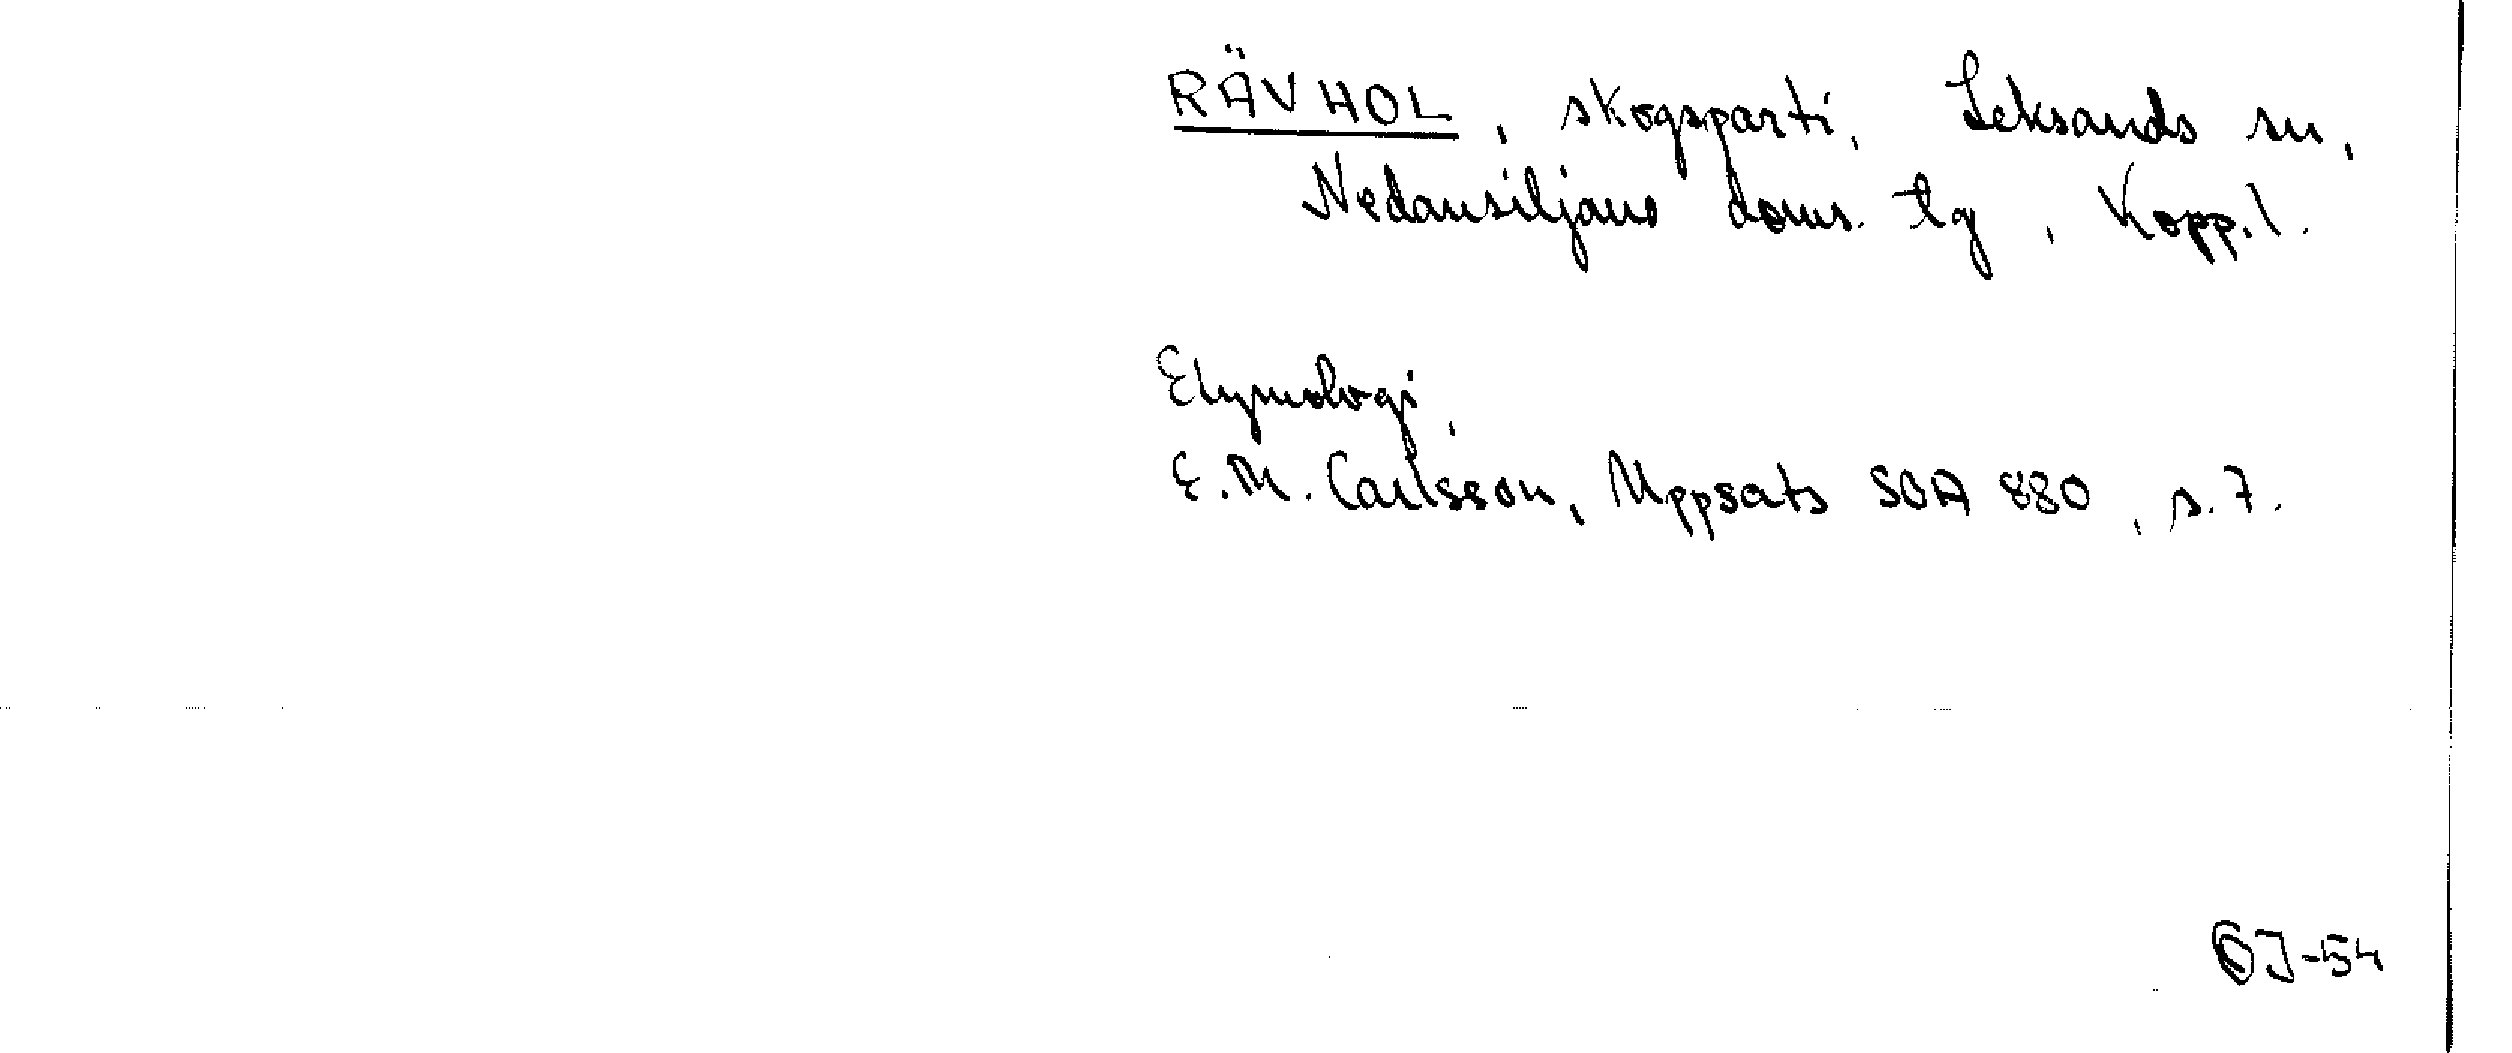 RÄVHOL, skogsparti, Leksands sn,
Nedansiljans doms. tg, Kopp.l.
Etymologi,
E.M. Carlsson, Uppsats SOA 880, s.7.